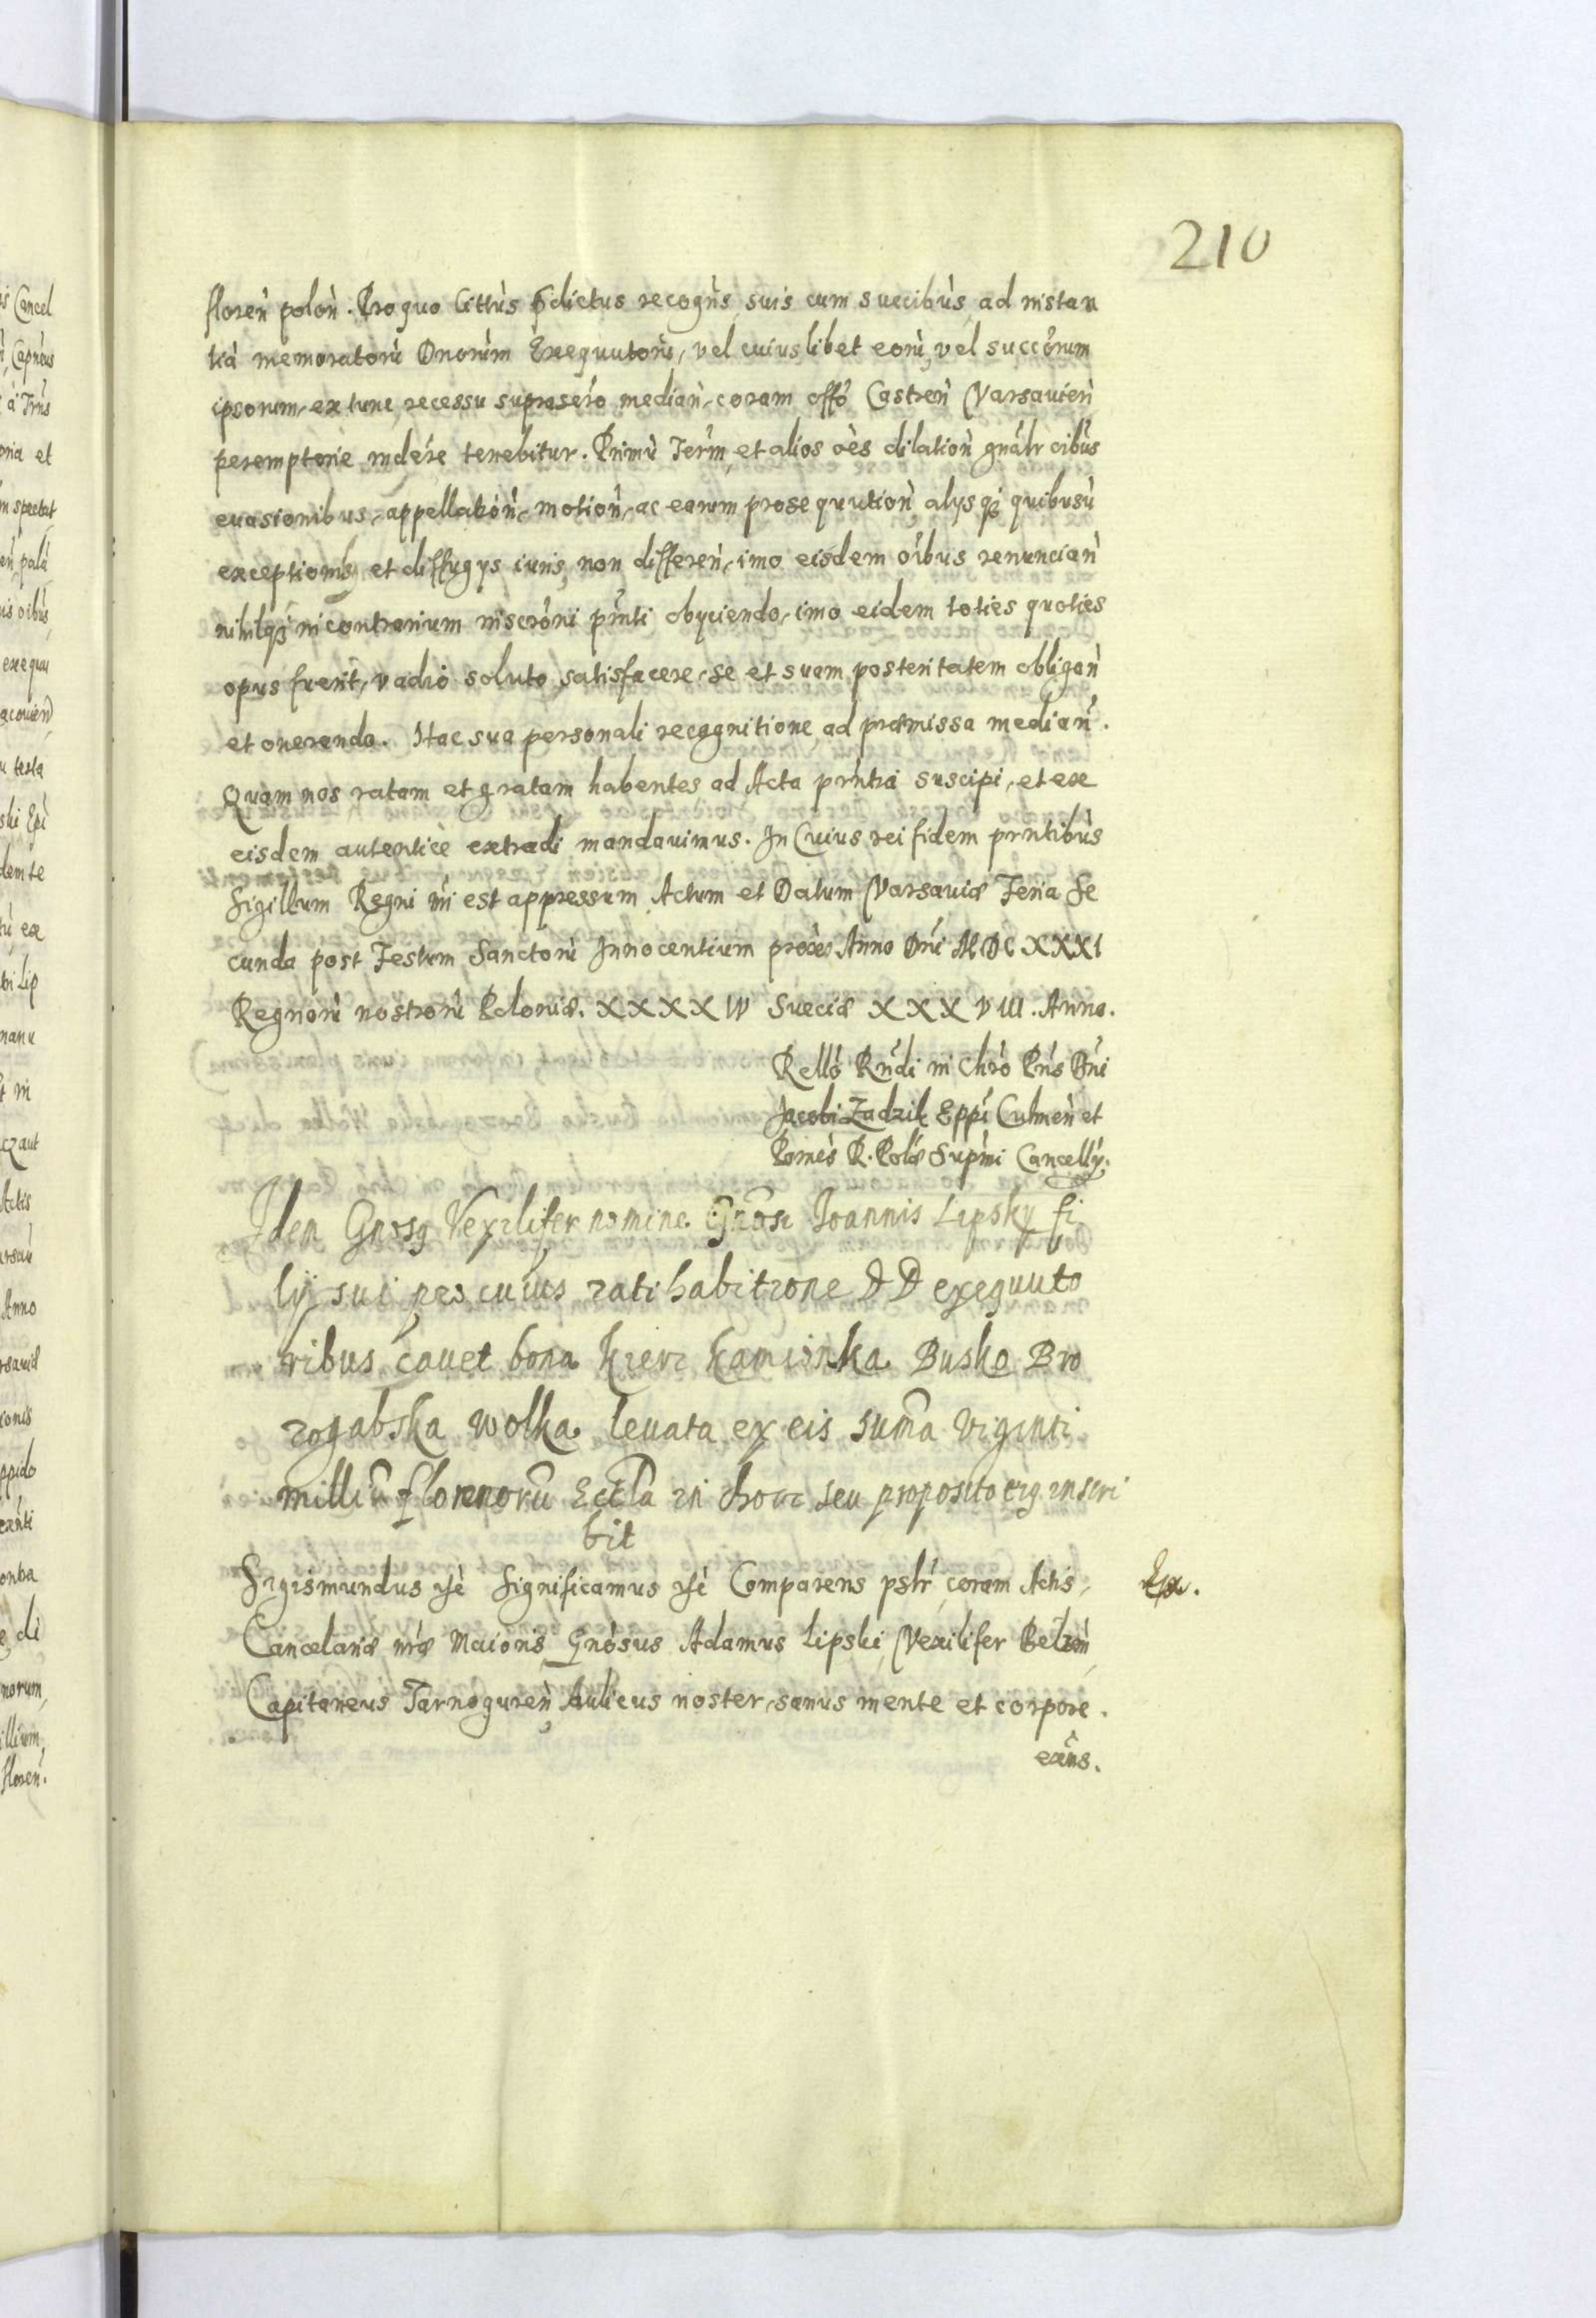 210
floreǹ poloǹ. Pro quo Cittùs pdictus recogǹs suis cum succibùs, ad instan
tià memoratorù Dnorùm Exequutorù, vel cuiuslibet eorù, vel succòrum
ipsorum, ex tunc recessu suprasèro mediaǹ, coram offò Castreǹ Varsavieǹ
peremptorie indère tenebitur. Primù Term̀, et alios oès dilatioǹ gnàlr oibùs
evasionibus, appellatioǹ, motioǹ, ac earum prosequutioǹ alysq; quibusù
exceptionib; et diffugys iuris non differeǹ, imo eisdem oìbus renunciaǹ
nihilq; in contrarium inscròni pǹti obyciendo, imo eidem toties quoties
opus fuerit, vadiò soluto satisfacere, se et suam posteritatem obligaǹ
et onerendo. Hac sua personali recognitione ad præmissa mediaǹ.
Quam nos ratam et gratam habentes ad Acta prǹtia suscipi, et ex
eisdem autenticè extradi mandavimus. In Cuius rei fidem prntibùs
Sigillum Regni ǹri est appressum. Actum et Datum Varsaviæ Feria Se
cunda post Festum Sanctorù Innocentium proxo Anno Dǹi MDCXXXI
Regnorù nostrorù Poloniæ. XXXXIV Sueciæ XXXVIII. Anno.
Rellò Rǹdi in Chrò Pr̀is Dǹi
Jacobi Zadzik Eppi Culmeǹ et
Pomès R. Polò Supmi Cancelly.
Idem Gnosg Vexilifer nomine Gnosi Joannis Lipsky fi
lij sui pro cuius ratihabitione DD exequuto
ribus cavet bona Kieri Kamionka Buska Bro
rogabska Wolka levata ex eis suma viginti
milliu florenoru Eccla in seu proposito eig inscri
bit
Sigismundus etè Significamus etè Comparens pslr̀ coram Actis,
Cancelariæ nr̀æ Maioris Gnòsus Adamus Lipski, Vexilifer Belzeǹ
Capitaneus Tarnogureǹ Aulicus noster, sanus mente et corpore.
exǹs.
Ex.